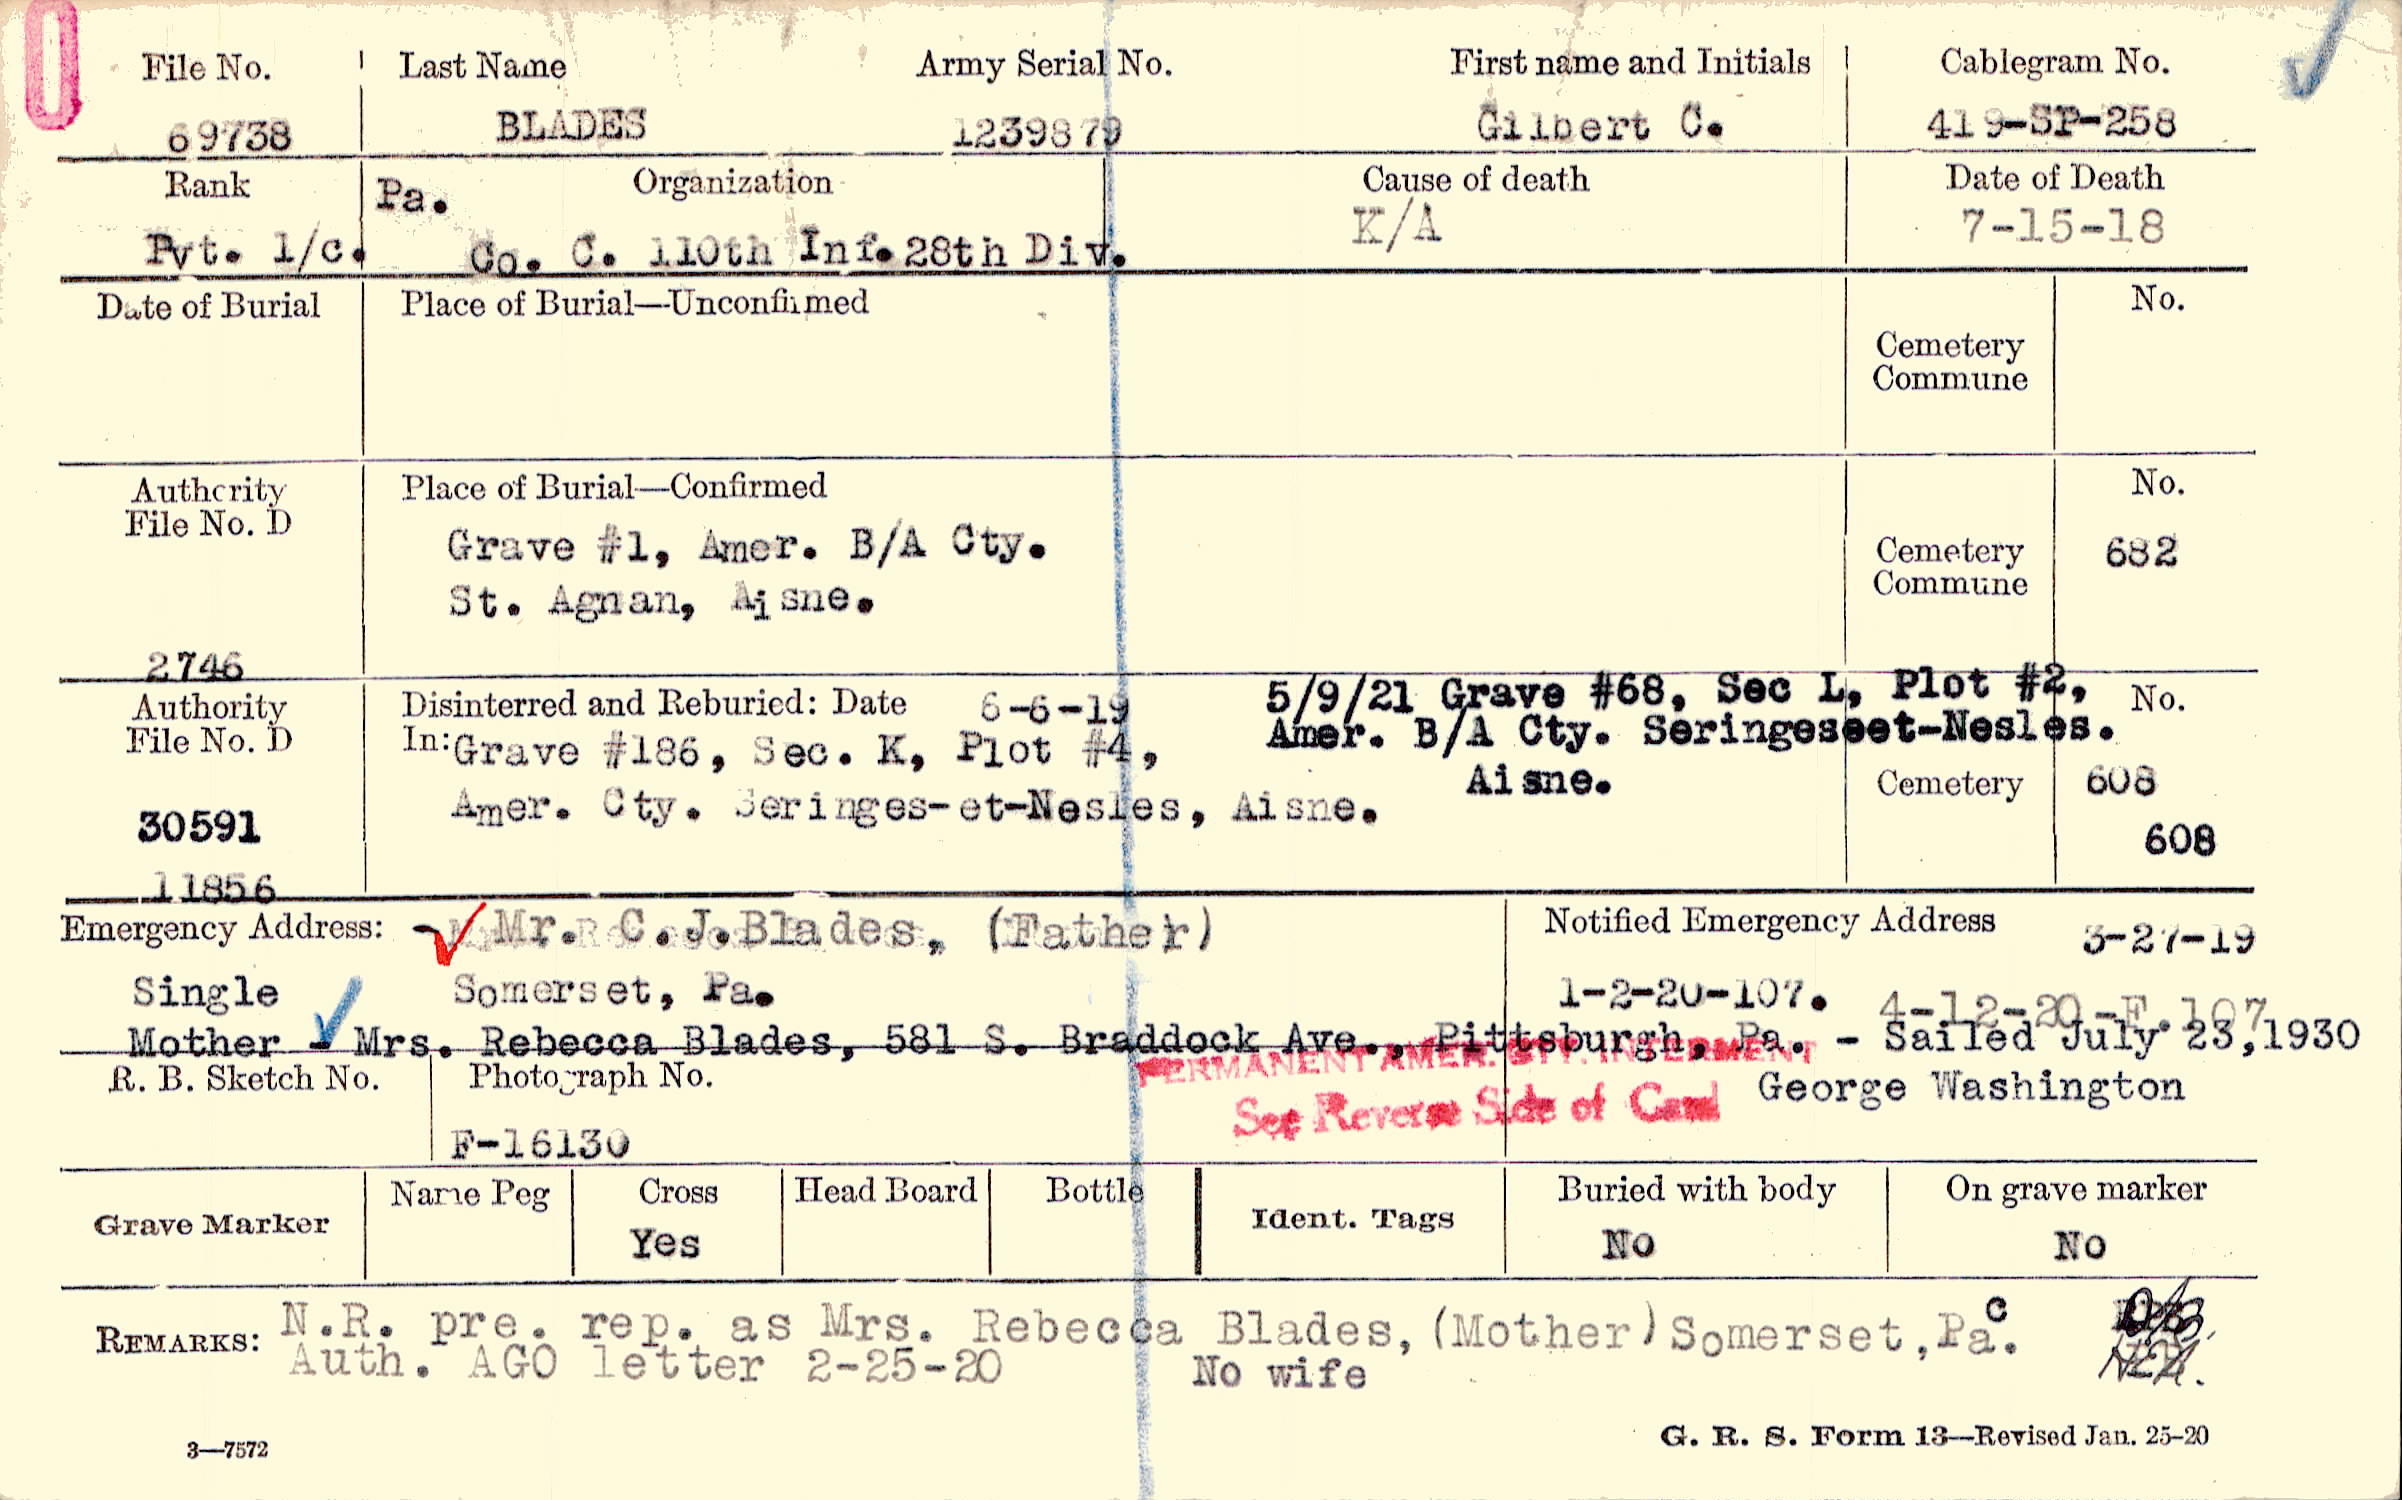 File No. Last Name Army Serial No. First name and Initials Cablegram No.
69738 BLADES 1239879 Gilbert C. 419-SP-258
Rank Organization Cause of death Date of Death
Pa.
Pvt. 1/c. Co. C. 110th Inf. 28th Div. K/A 7-15-18
Date of Burial Place of Burial—Unconfirmed No.
Cemetery
Commune
Authority Place of Burial—Confirmed No.
File No. D
Grave #1, Amer. B/A Cty. Cemetery 682
St. Agnan, Aisne. Commune
2746
5/9/21 Grave #68, Sec L, Plot #2,
Authority Disinterred and Reburied: Date 6-6-19 No.
File No. D In: Grave #186, Sec. K, Plot #4, Amer. B/A Cty. Seringeseet-Nesles.
Aisne. Cemetery 608
Amer. Cty. Seringes-et-Nesles, Aisne.
30591 608
11856
Emergency Address: Mr. C.J.Blades, (Father) Notified Emergency Address 3-27-19
Single Somerset, Pa. 1-2-20-107. 4-12-20-F.107
Mother - Mrs. Rebecca Blades, 581 S. Braddock Ave., Pittsburgh, Pa. - Sailed July 23,1930
PERMANENT AMER. INTERMENT
R. B. Sketch No. Photograph No. George Washington
See Reverse Side of Card
F-16130
Grave Marker Name Peg Cross Head Board Bottle Ident. Tags Buried with body On grave marker
Yes No No
REMARKS: N.R. pre. rep. as Mrs. Rebecca Blades, (Mother) Somerset, Pa. c
Auth. AGO letter 2-25-20 No wife
3—7572 G. R. S. Form 13—Revised Jan. 25-20